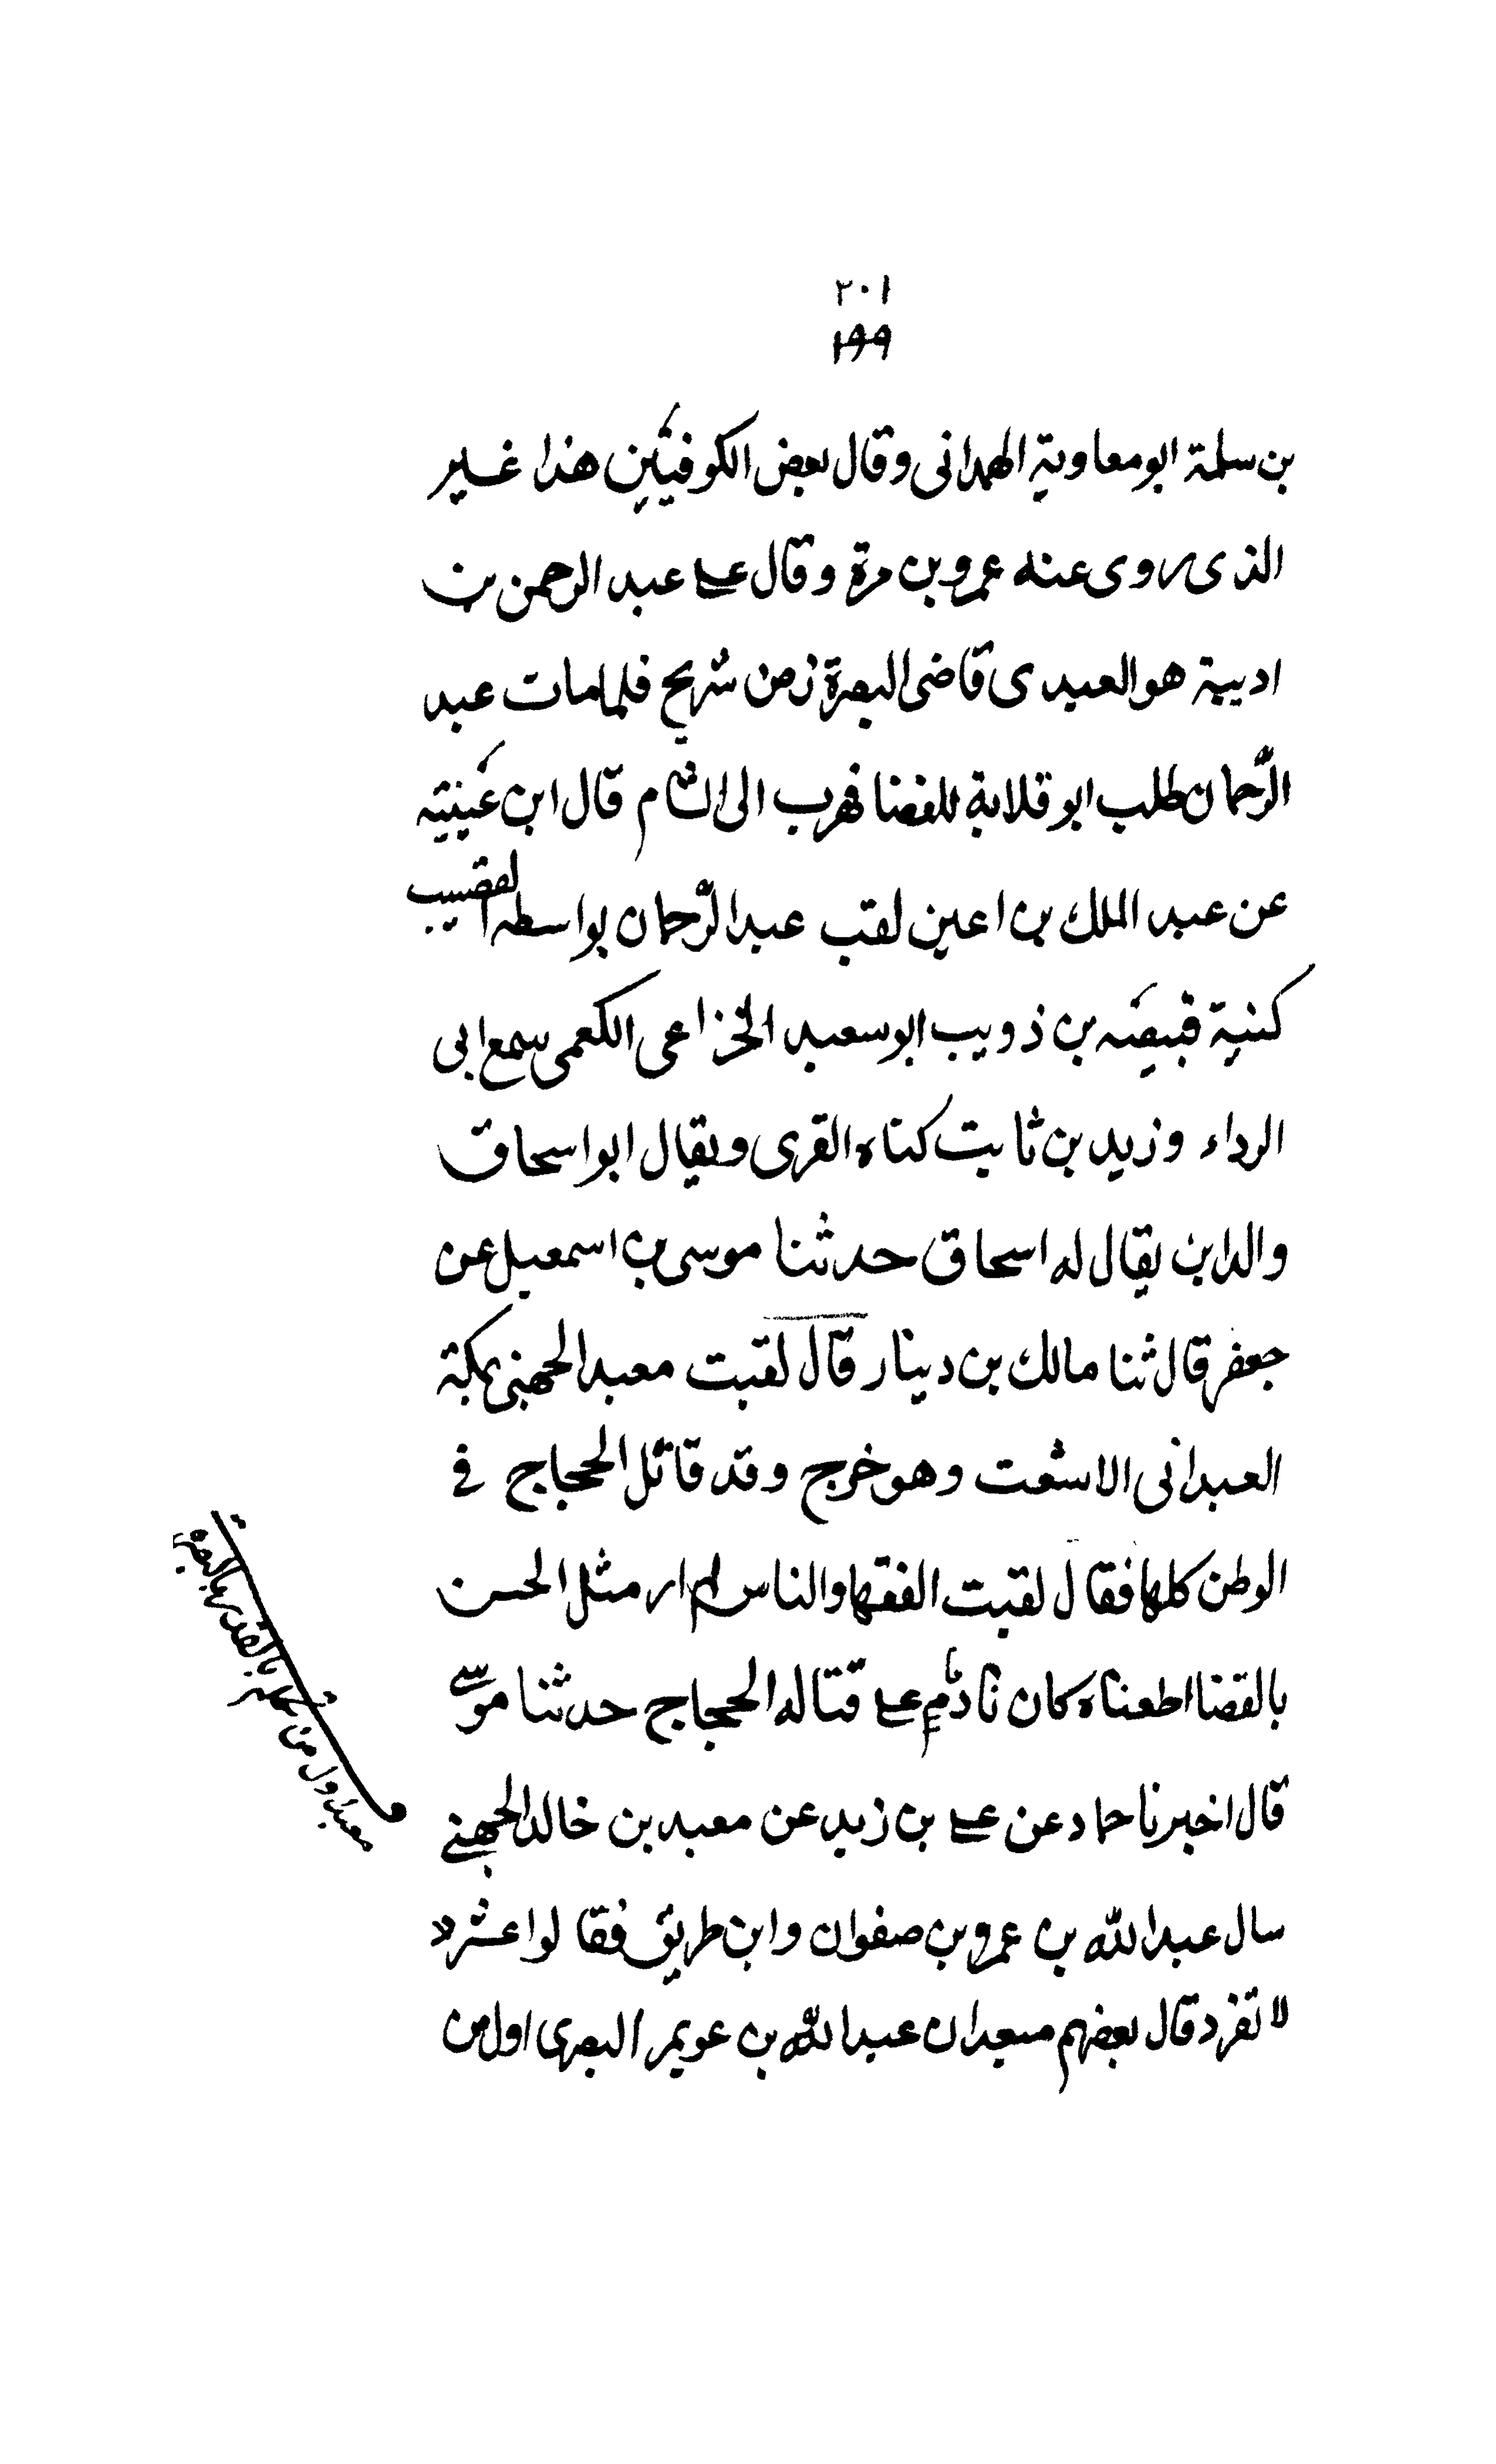 ٢٠١
١٩٩
بن سلمة ابو معاوية الهمدانى وقال بعض الكوفيّين هذا غير
الذى روى عنه عمرو بن مرة وقال على عبد الرحمن بن
اديبة هو العبدى قاضى البصرة زمن شريح فلما مات عبد
الرّحمان طلب ابو قلابة للقضا فهرب الى الشام قال ابن عُيينة
عن عبد الملك بن اعين لقب عبد الرّحمان بواسطه القضيب
كنية قبيصَه بن ذويب ابو سعيد الخزاعى الكعمى سمع ابى
الرداء وزيد بن ثابت كناه القرى ويقال ابو اسحاق
والد ابن يقال له اسحاق حدثنا موسى بن اسمعيل عن
جعفر قال ثنا مالك بن دينار قال لقيت معبد الجهنى بمكة
العبد انى الاشعت وهو خرج وقد قاتل الحجاج فى
الوطن كلها فقال لقيت الفقها والناس لم ار مثل الحسن
بالقضا اطعناه كان نادم على قتاله الحجاج حدثنا موسى
قال اخبرنا حماد عن على بن زيد عن معبد بن خالد الجهنى
سال عبد الله بن عمرو بن صفوان وابن طريق فقالوا عشرد
لا تفرد قال بعضهم معبد ان عبد الله بن عويمر البصرى اول من
معبد اول من تكلم بالقدر بالبصرة